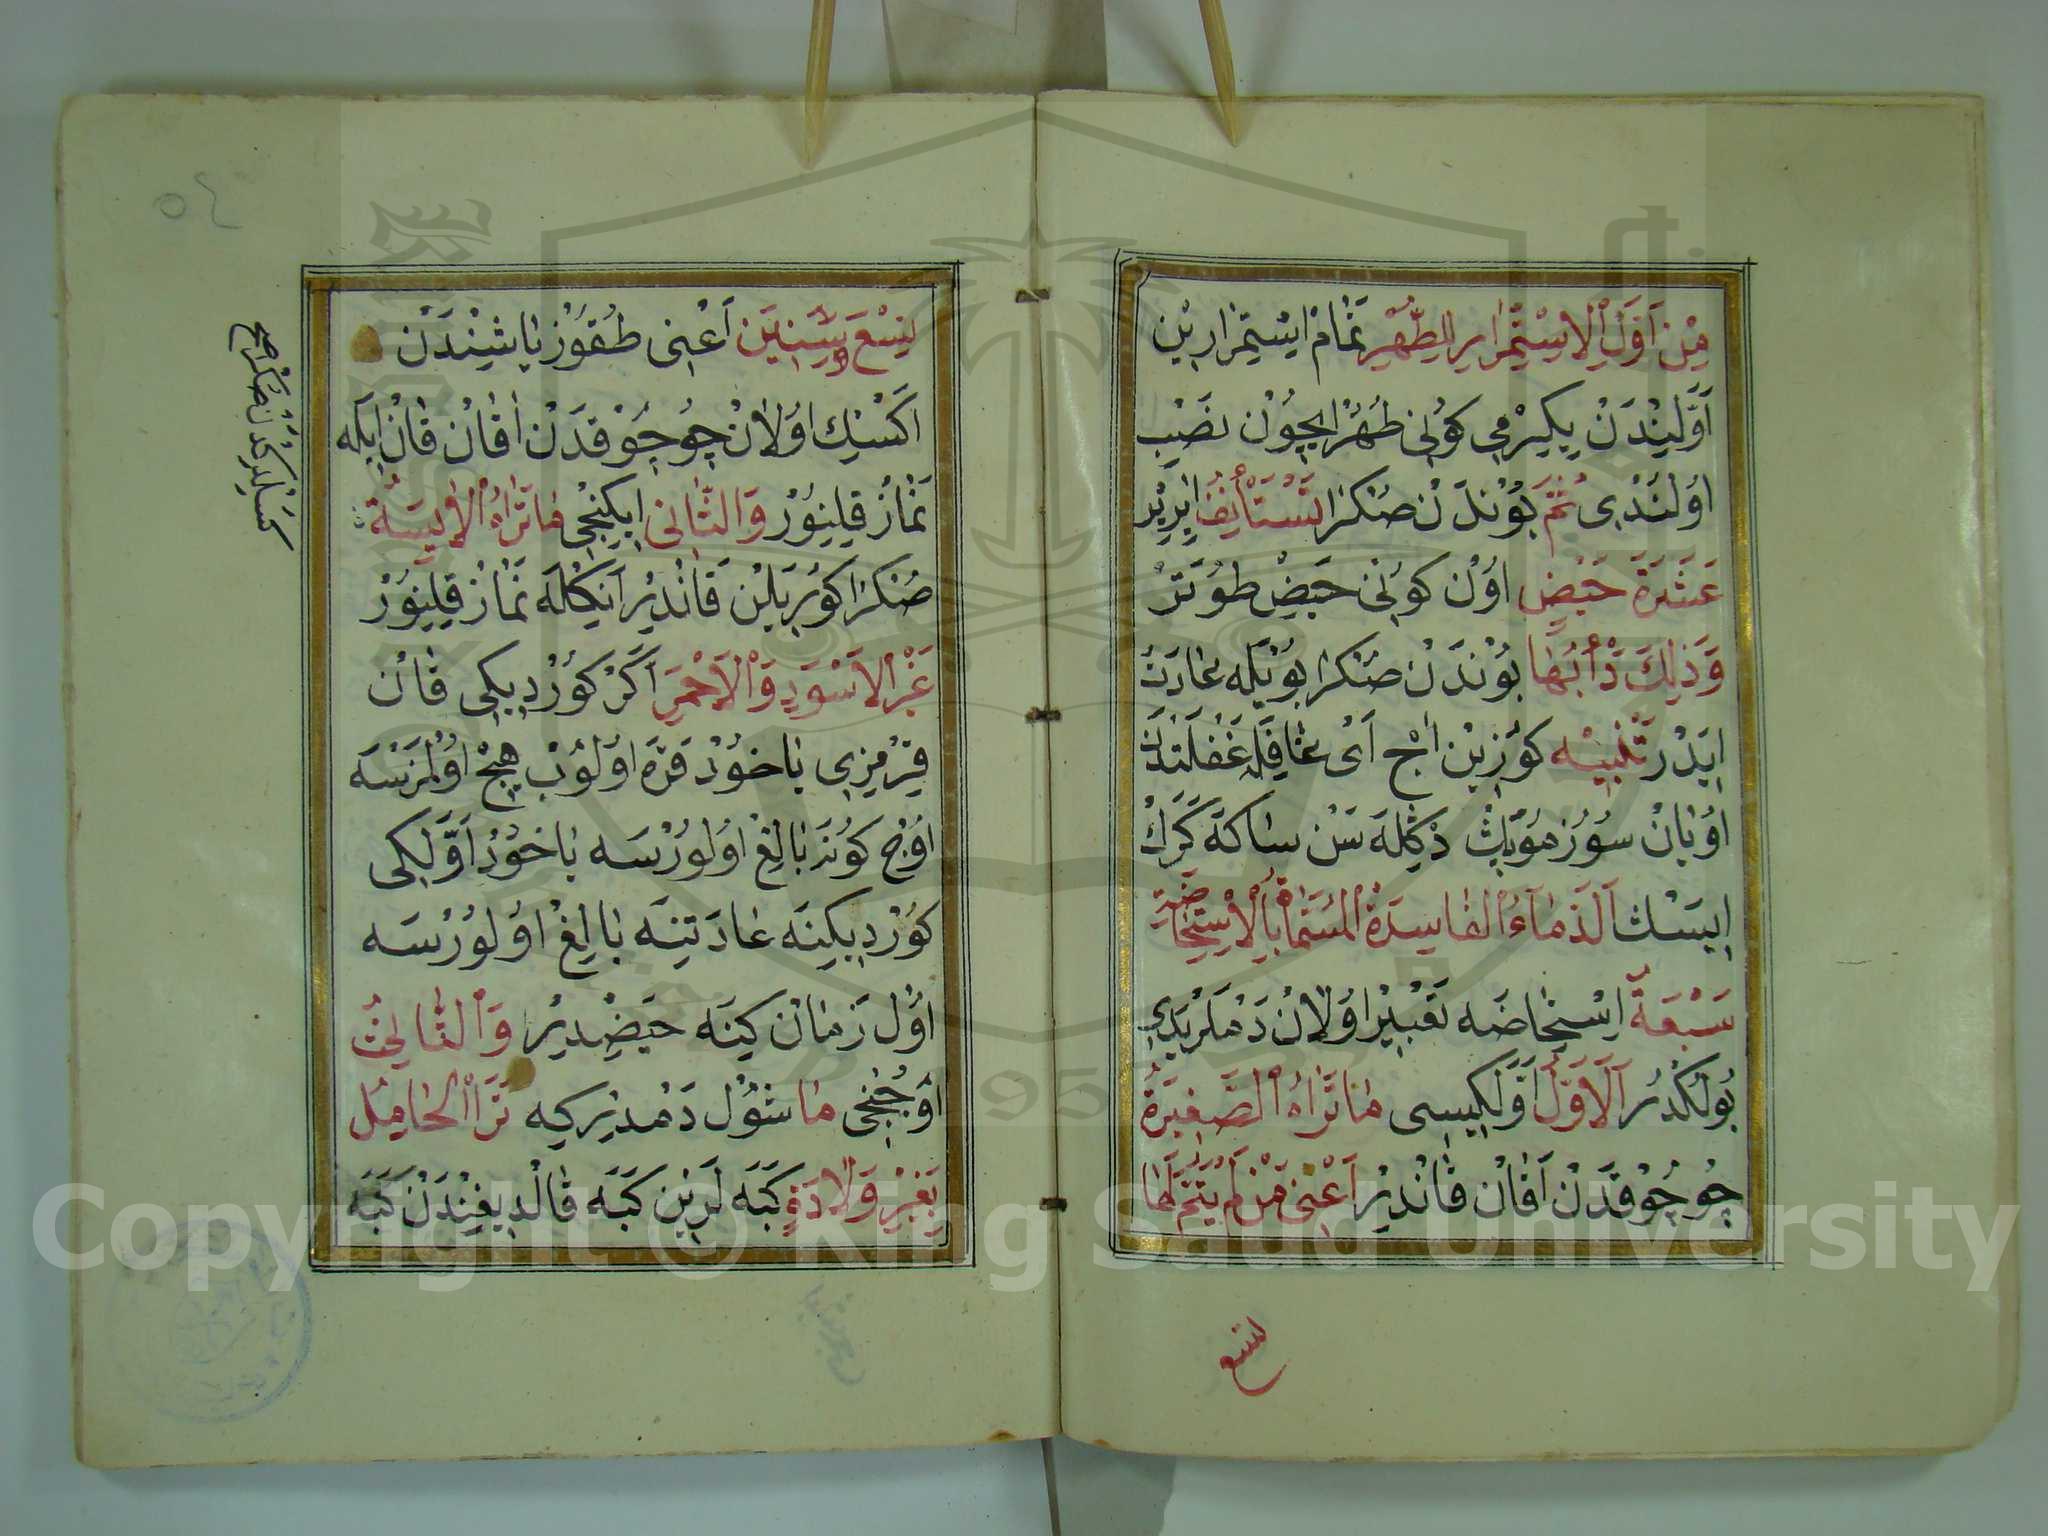 مِنْ اَوَّلِ الْاِسْتِمْرَارِ لِلطُّهْرِ تَمَامْ اِسْتِمْرَارِيْن
اَوَّلِيْنْدَنْ يِكِيرْمِي كُونِي طُهُرْ اِيچُونْ نَصِيب
اُولَنْدِى ثُمَّ بُوْنْدَنْ صُكْرَا تَسْتَأْنِفُ اِيْرِيْر
عَشَرَةَ حَيْضٍ اوُنْ كُونِى حَيْضْ طُوتَرْ
وَذٰلِكَ دَأْبُهَا بُوْنْدَنْ صُكْرَا بُوْيلَه عَادَتْ
اِيدَرْ تَنْبِيْه كُوزِيْن اٰچْ اَىْ غَافِلْ غَفْلَتْدَن
اُويَانْ سُوزُمُو دِڭْلَه سَنْ سَاكَه كَرَكْ
اِيسَكْ اَلدِّمَاءُ الْفَاسِدَةُ الْمُسَمَّاةُ بِالْاِسْتِحَاضَةِ
سَبْعَةٌ اِسْتِحَاضَه تَعْبِيْر اُولَانْ دَمْلَرْ يَدِى
بُولُكْدُرْ اَلْاَوَّلُ اَوَّلْكِيسِى مَاتَرَاهُ الصَّغِيرَةُ
چُوجُوقْدَنْ اَقَانْ قَانْدِيْر اَعْنِى مَنْ لَمْ يَتِمَّ لَهَا
لتسع
تِسْعُ سِنِينَ اَعْنِى طُقُوزْ يَاشِنْدَنْ
اَكْسِكْ اوُلَانْ چُوجُوقْدَنْ اَقَانْ قَانْ اِيلَه
نَمَازْ قِلِنُورْ وَالثَّانِى اِيكِنْجِى مَاتَرَاهُ الْاٰيِسَةُ
صُكْرَا كُورِيلَنْ قَانْدِيْر اَنِكْلَه نَمَازْ قِلِنُورْ
غَيْرَ الْاَسْوَدِ وَالْاَحْمَرِ اَكَرْ كُورْدِيكِى قَانْ
قِرْمِزِى يَاخُودْ قَرَه اوُلُوبْ هِيچْ اوُلْمَزْسَه
اوُچْ كُونَه بَالِغْ اوُلُورْسَه يَاخُودْ اَوَّلْكِى
كُورْدِيكِينَه عَادَتِينَه بَالِغْ اوُلُورْسَه
اوُلْ زَمَانْ كِينَه حَيْضْدِيْر وَالثَّالِثُ
اوُچُنْجِى مَا شُولْ دَمْدِيْركِه تَرَاالْحَامِلُ
بِغَيْرِ وِلَادَةٍ كَبَه لَرِيْن كَبَه قَالْدِيغِنْدَنْ كَبَه